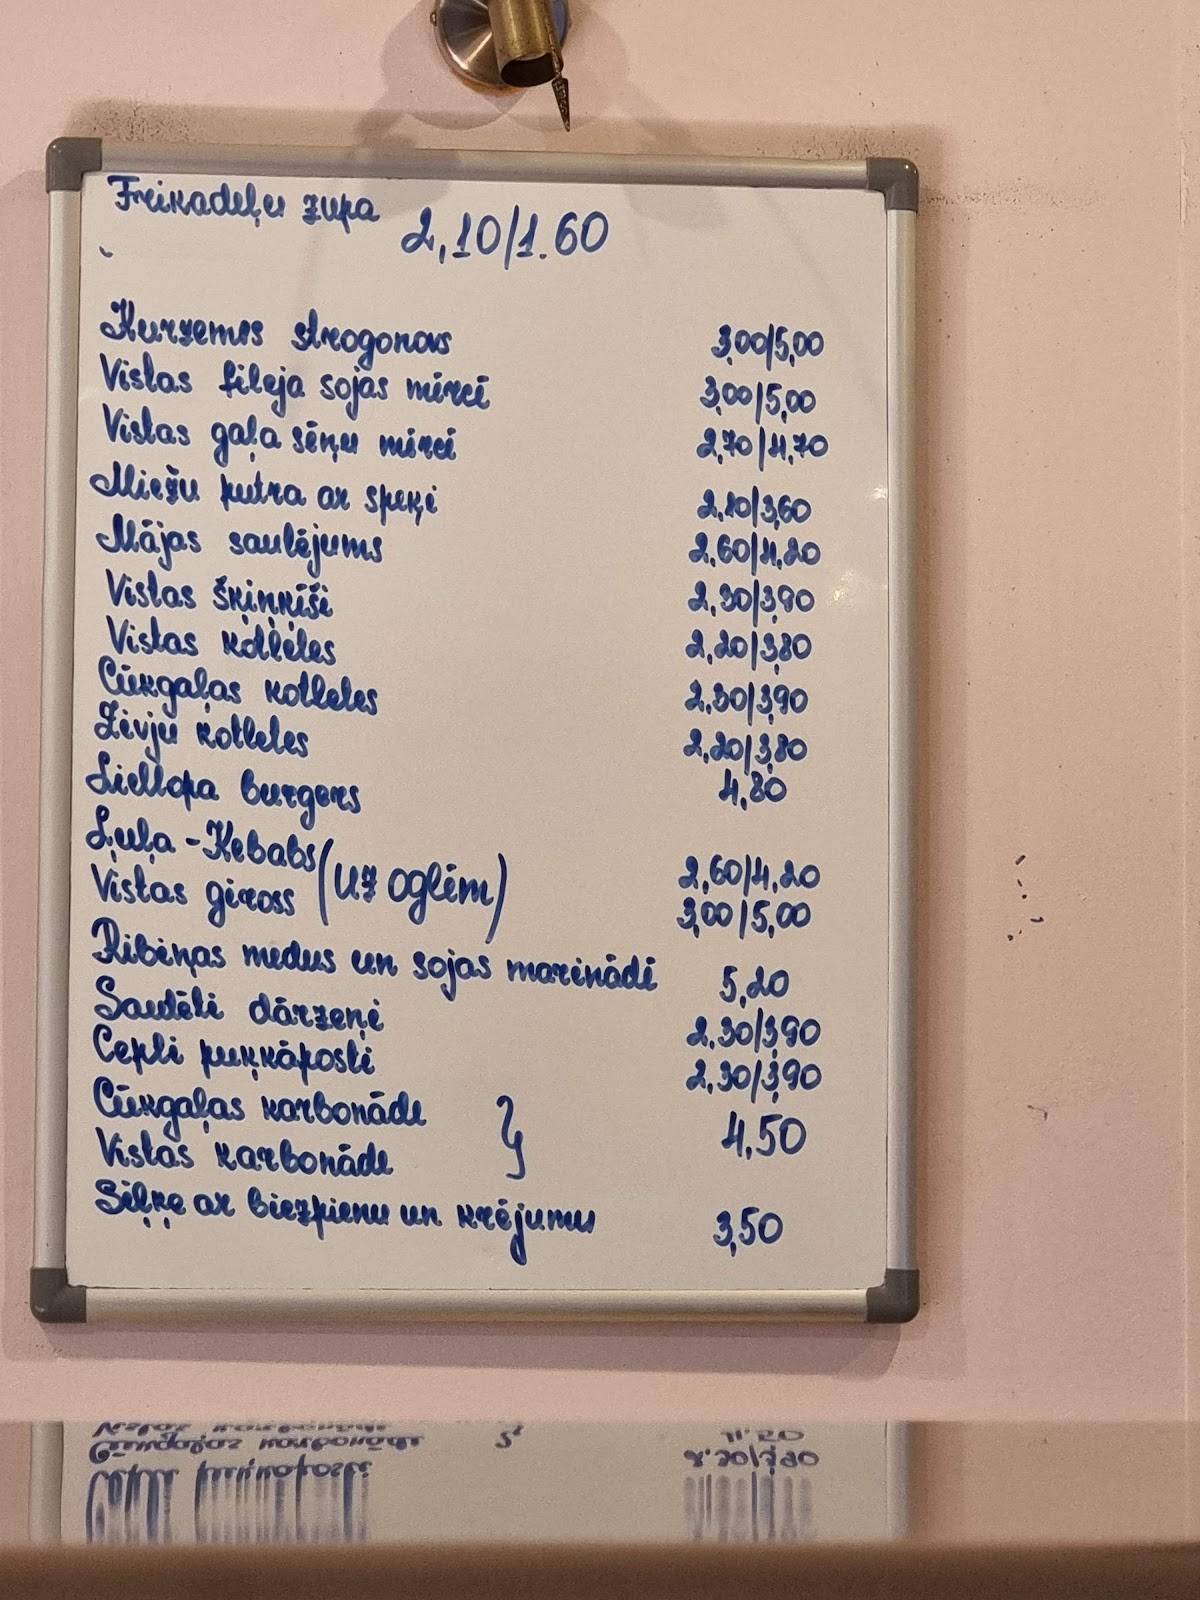 Frikadeļu zupa 2,10/1.60
Kurzemes strogonovs 3,00/5,00
Vistas fileja sojas mērcē 3,00/5,00
Vistas gaļa sēņu mērcē 2,70/4,70
Miežu putra ar speķi 2,20/3,60
Mājas sautējums 2,60/4,20
Vistas šķiņķīši 2,30/3,90
Vistas kotletes 2,20/3,80
Cūkgaļas kotletes 2,30/3,90
Zivju kotletes 2,20/3,80
Liellopa burgers 4,80
Ļuļa-Kebabs (uz oglēm) 2,60/4,20
Vistas giross 3,00/5,00
Ribiņas medus un sojas marinādē 5,20
Sautēti dārzeņi 2,30/3,90
Cepti puķkāposti 2,30/3,90
Cūkgaļas karbonāde
Vistas karbonāde } 4,50
Siļķe ar biezpienu un krējumu 3,50